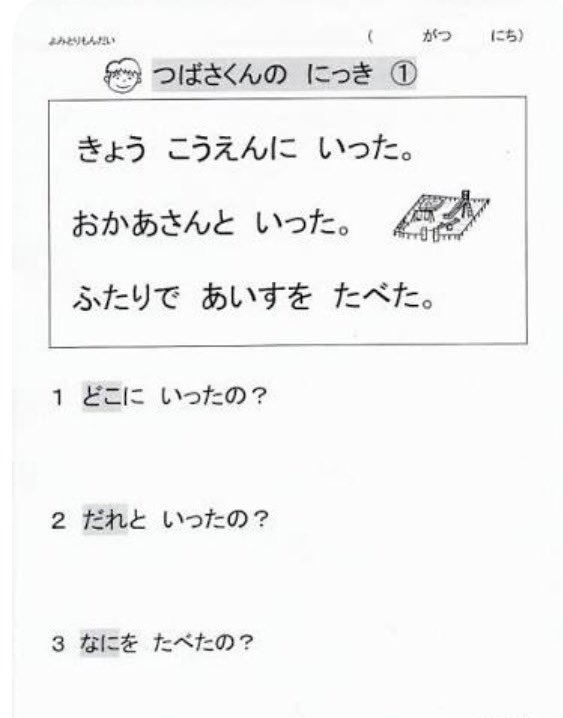 よみとりもんだい
( がつ にち)
つばさくんの にっき ①
きょう こうえんに いった。
おかあさんと いった。
ふたりで あいすを たべた。
1 どこに いったの？
2 だれと いったの？
3 なにを たべたの？